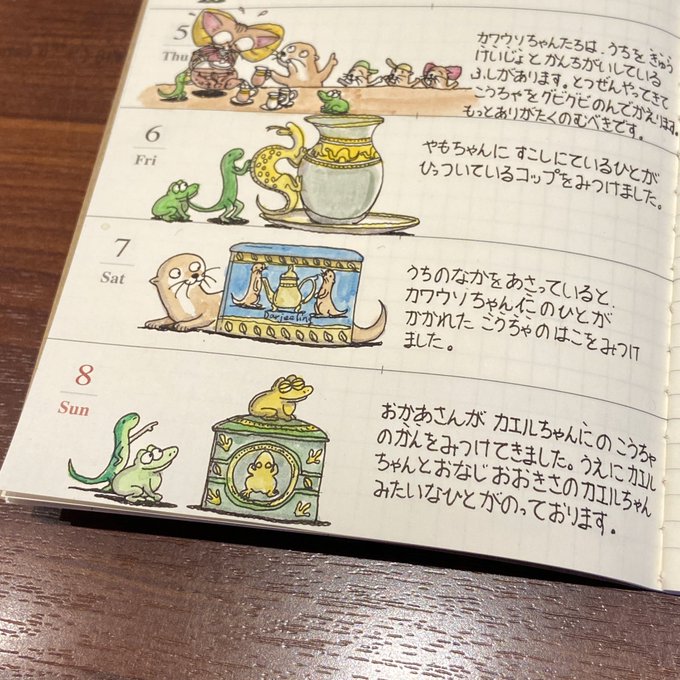 5
Thu
カワウソちゃんたちは、うちを きゅう
けいじょと かんちがいしている
ふしがあります。とつぜんやってきて
こうちゃを グビグビ のんでかえります。
もっとありがたくのむべきです。
6
Fri
やもちゃんに すこしにているひとが
ひっついているコップをみつけました。
7
Sat
Darjeeling
うちのなかをあさっていると、
カワウソちゃんに にのひとが
かかれた こうちゃのはこをみつけ
ました。
8
Sun
おかあさんが カエルちゃんにの こうちゃ
のかんをみつけてきました。うえにカエル
ちゃんとおなじおおきさのカエルちゃん
みたいなひとがのっております。